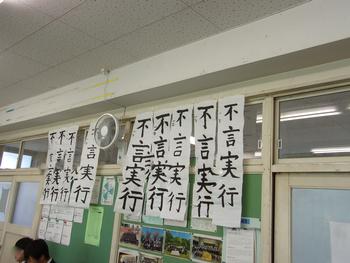 不言実行
不言実行
不言実行
不言実行
不言実行
言実行
不言実行
不言実行
不言実行